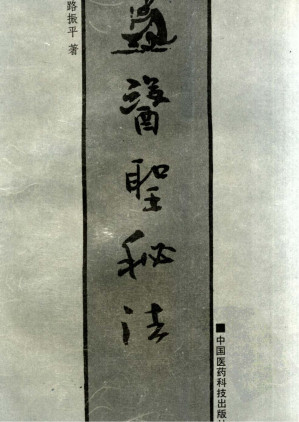 路振平 著
醫聖秘法
中国医药科技出版